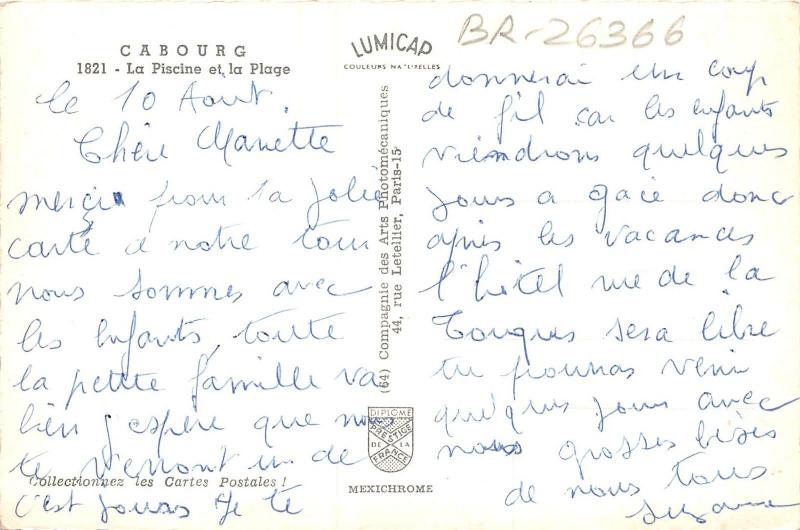 CABOURG
1821 - La Piscine et la Plage
LUMICAP
COULEURS NATURELLES
BR-26366
le 10 Aout.
Chère Manette
merci pour la jolie
carte a notre tour
nous sommes avec
les enfants, toute
la petite famille va
bien j'espère que nous
te verront un de
c'est jours je te
Collectionnez les Cartes Postales !
(64) Compagnie des Arts Photomécaniques
44, rue Letellier, Paris-15
DIPLOME
PRESTIGE
DE LA
FRANCE
MEXICHROME
donnerai un coup
de fil car les enfants
viendrons quelques
jours a gaie donc
après les vacances
l'hôtel rue de la
Touques sera libre
tu pourras venir
quelques jours avec
nous grosses bises
de nous tous
Suzanne